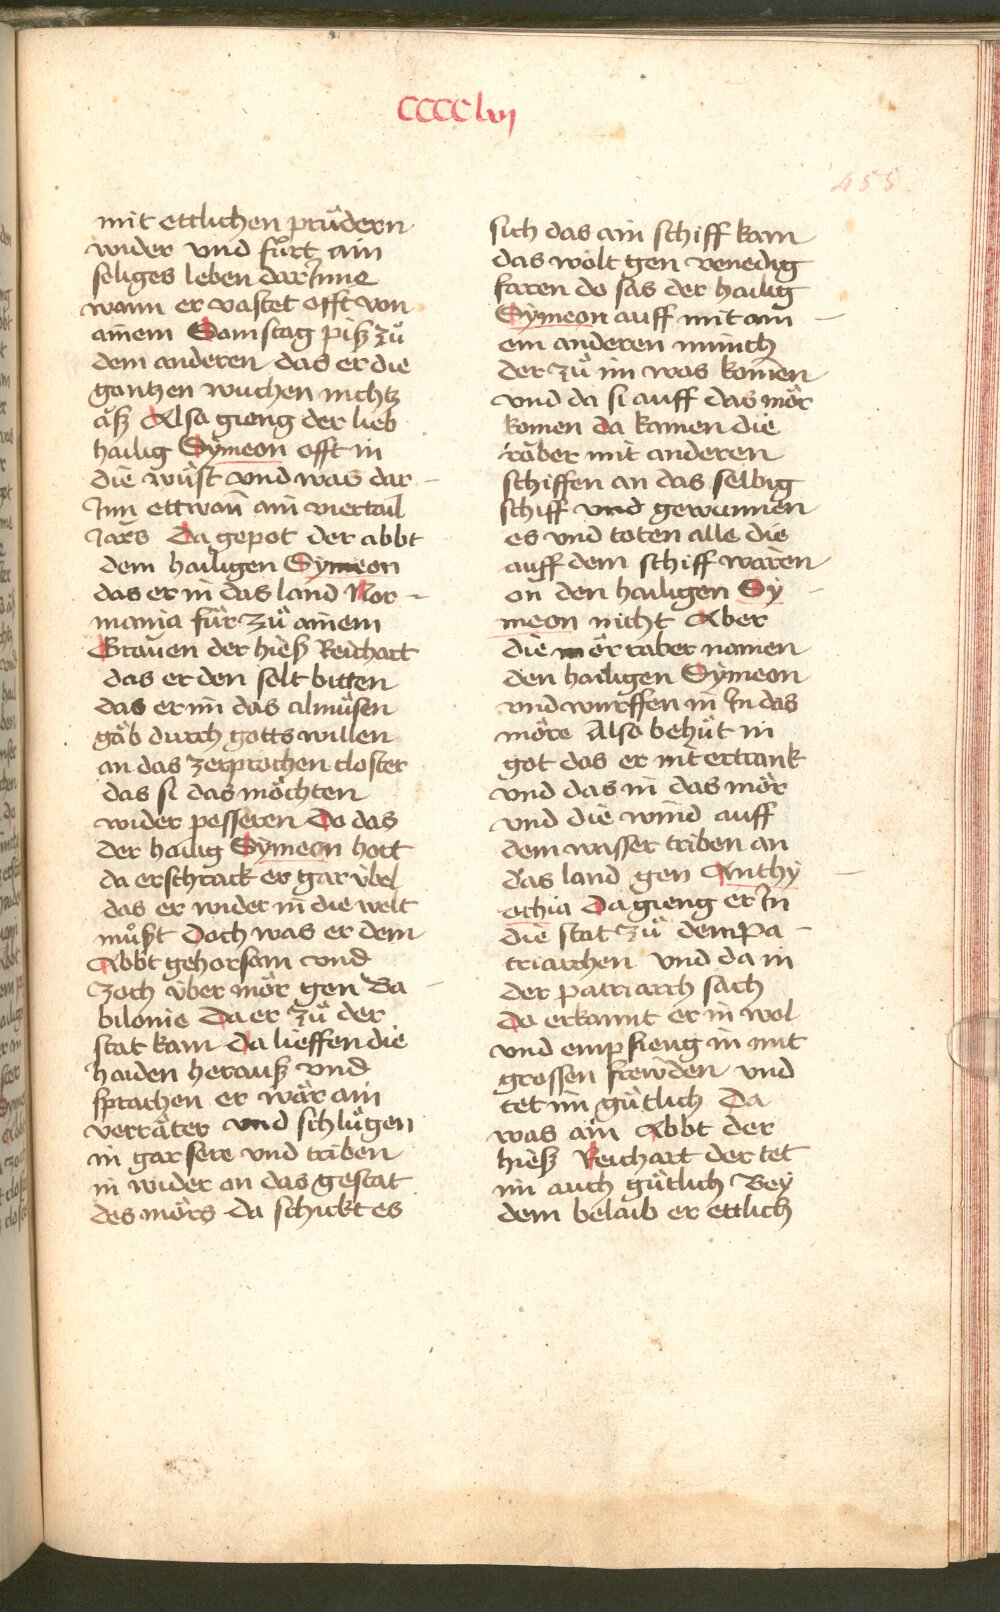 CCCClvj
455
mit ettlichen prüdern
wider vnd fürt ain
seliges leben dar Jnne
wann er vastet offt von
ainem Samstag piß zů
dem anderen das er die
gantzen wuchen nichtz
äß Also gieng der lieb
hailig Symeon offt in
die wüst vnd was dar -
Jnn ettwan ain viertail
Jars Da gepot der abbt
dem hailigen Symeon
das er in das land Nor -
mania für zů ainem
Grauen der hieß Reichart
das er den solt bitten
das er im das almůsen
gäb durch gotts willen
an das zerprochen closter
das si das möchten
wider pesseren Do das
der hailig Symeon hort
da erschrack er gar vbel
das er wider in die welt
můßt Doch was er dem
Abbt gehorsam vnd
zoch über mör gen Ba -
bilonie Da er zů der
stat kam Da lieffen die
haiden herauß vnd
sprachen er wär ain
verräter vnd schlůgen
in gar sere vnd triben
in wider an das gestat
des mörs da schickt es
sich das ain schiff kam
das wolt gen venedig
faren do sas der hailig
Symeon auff mit am -
em anderen münch
der zů im was komen
vnd da si auff das mör
komen da kamen die
räber mit anderen
schiffen an das selbig
schiff vnd gewunnen
es vnd toten alle die
auff dem schiff waren
on den hailigen Sy -
meon nicht Aber
die mör raber namen
den hailigen Symeon
vnd wurffen in Jn das
möre Also behůt in
got das er nit ertrank
vnd das in das mör
vnd die wind auff
dem wasser triben an
das land gen Anthy -
ochia Da gieng er Jn
die stat zů dem Pa -
triarchen vnd da in
der patriarch sach
Do erkannt er in wol
vnd empfieng in mit
grossen frewden vnd
tet im gütlich Da
was ain Abbt der
hieß Reichart der tet
im auch gütlich Bey
dem belaib er ettlich